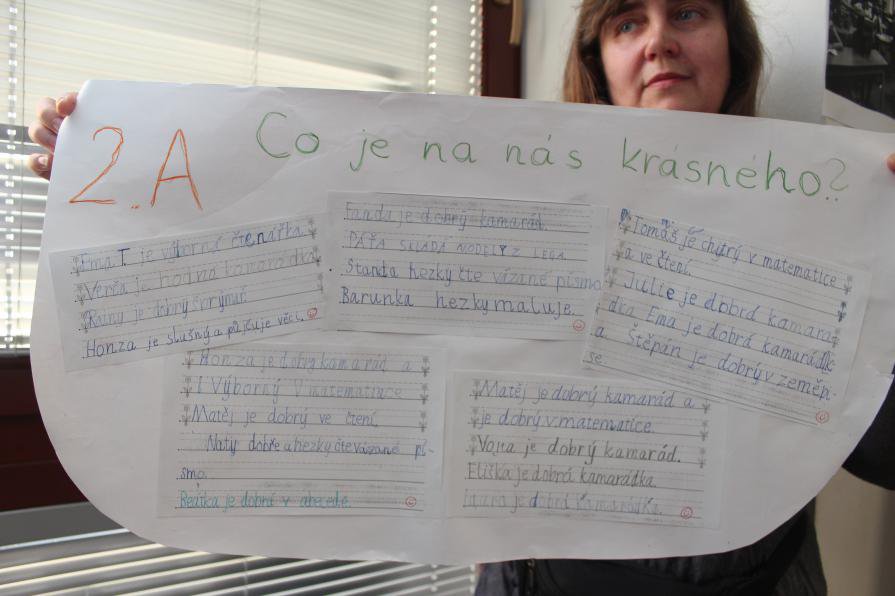 2.A Co je na nás krásného?
Ema T. je výborná čtenářka.
Verča je hodná kamarádka
je dobrý
Honza je slušný a půjčuje věci.
Fanda je dobrý kamarád.
PÁŤA SKLÁDÁ MODELY Z LEGA.
Standa hezky čte vázané písmo
Barunka hezky maluje.
Tomáš je chytrý v matematice
a ve čtení.
Julie je dobrá kamará
dka Ema je dobrá kamarádk
a. Štěpán je dobrý v zeměpi-
se.
Honza je dobrý kamarád a
i Výborný V matematice
Matěj je dobrý ve čtení.
Naty dobře a hezky čte vázané pí-
smo.
Beátka je dobrá v abecedě.
Matěj je dobrý kamarád a
je dobrý v matematice.
Vojta je dobrý kamarád.
Eliška je dobrá kamarádka
je dobrá kamarádka.